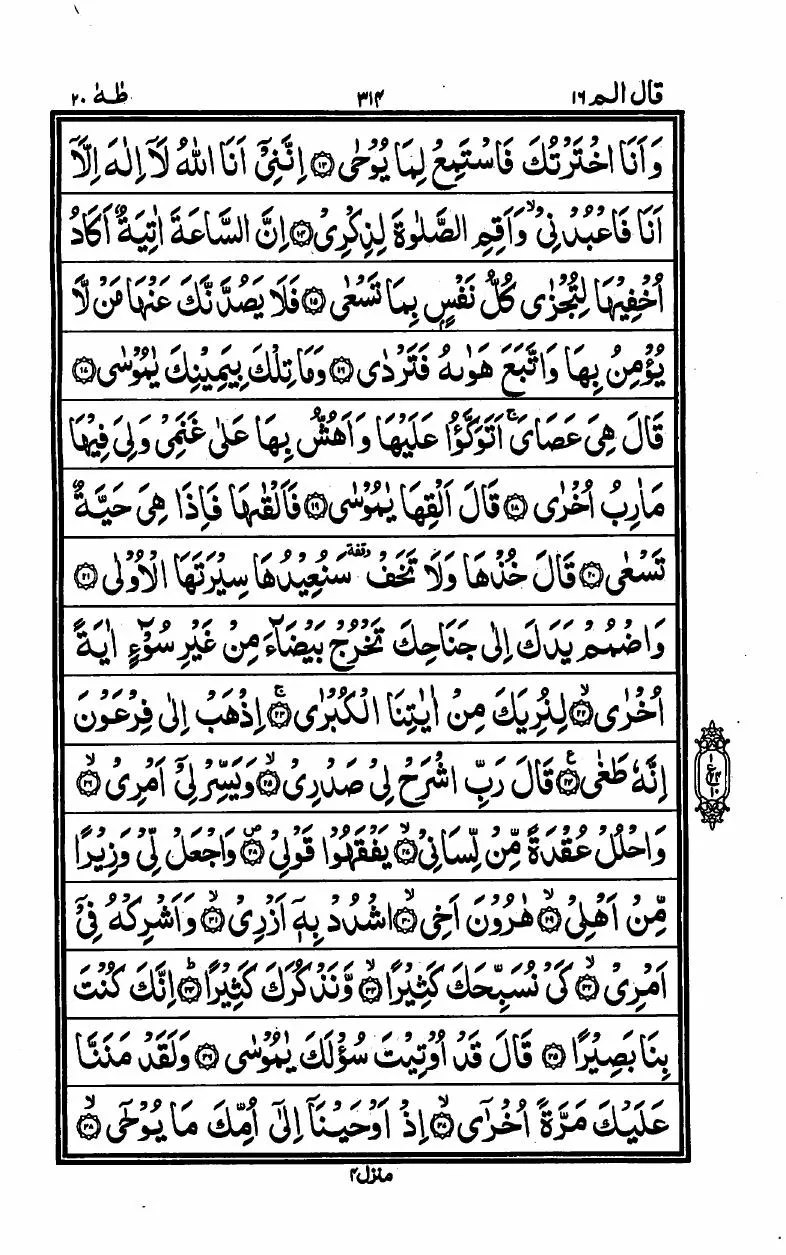 قال الم ١٦
٣١٤
طٰهٰ ٢٠
وَاَنَا اخْتَرْتُكَ فَاسْتَمِعْ لِمَا يُوْحٰى ﴿١٣﴾ اِنَّنِيْۤ اَنَا اللّٰهُ لَاۤ اِلٰهَ اِلَّاۤ
اَنَا فَاعْبُدْنِيْ ۙ وَاَقِمِ الصَّلٰوةَ لِذِكْرِيْ ﴿١٤﴾ اِنَّ السَّاعَةَ اٰتِيَةٌ اَكَادُ
اُخْفِيْهَا لِتُجْزٰى كُلُّ نَفْسٍۭ بِمَا تَسْعٰى ﴿١٥﴾ فَلَا يَصُدَّنَّكَ عَنْهَا مَنْ لَّا
يُؤْمِنُ بِهَا وَاتَّبَعَ هَوٰىهُ فَتَرْدٰى ﴿١٦﴾ وَمَا تِلْكَ بِيَمِيْنِكَ يٰمُوْسٰى ﴿١٧﴾
قَالَ هِيَ عَصَايَ ۚ اَتَوَكَّؤُا عَلَيْهَا وَاَهُشُّ بِهَا عَلٰى غَنَمِيْ وَلِيَ فِيْهَا
مَاٰرِبُ اُخْرٰى ﴿١٨﴾ قَالَ اَلْقِهَا يٰمُوْسٰى ﴿١٩﴾ فَاَلْقٰىهَا فَاِذَا هِيَ حَيَّةٌ
تَسْعٰى ﴿٢٠﴾ قَالَ خُذْهَا وَلَا تَخَفْ ۥوقفة سَنُعِيْدُهَا سِيْرَتَهَا الْاُوْلٰى ﴿٢١﴾
وَاضْمُمْ يَدَكَ اِلٰى جَنَاحِكَ تَخْرُجْ بَيْضَآءَ مِنْ غَيْرِ سُوْٓءٍ اٰيَةً
اُخْرٰى ۙ﴿٢٢﴾ لِنُرِيَكَ مِنْ اٰيٰتِنَا الْكُبْرٰى ۚ﴿٢٣﴾ اِذْهَبْ اِلٰى فِرْعَوْنَ
اِنَّهٗ طَغٰى ﴿٢٤﴾ ع قَالَ رَبِّ اشْرَحْ لِيْ صَدْرِيْ ۙ﴿٢٥﴾ وَيَسِّرْ لِيْۤ اَمْرِيْ ۙ﴿٢٦﴾
وَاحْلُلْ عُقْدَةً مِّنْ لِّسَانِيْ ۙ﴿٢٧﴾ يَفْقَهُوْا قَوْلِيْ ۪﴿٢٨﴾ وَاجْعَلْ لِّيْ وَزِيْرًا
مِّنْ اَهْلِيْ ۙ﴿٢٩﴾ هٰرُوْنَ اَخِي ۙ﴿٣٠﴾ اشْدُدْ بِهٖۤ اَزْرِيْ ۙ﴿٣١﴾ وَاَشْرِكْهُ فِيْۤ
اَمْرِيْ ۙ﴿٣٢﴾ كَيْ نُسَبِّحَكَ كَثِيْرًا ۙ﴿٣٣﴾ وَّنَذْكُرَكَ كَثِيْرًا ؕ﴿٣٤﴾ اِنَّكَ كُنْتَ
بِنَا بَصِيْرًا ﴿٣٥﴾ قَالَ قَدْ اُوْتِيْتَ سُؤْلَكَ يٰمُوْسٰى ﴿٣٦﴾ وَلَقَدْ مَنَنَّا
عَلَيْكَ مَرَّةً اُخْرٰۤى ۙ﴿٣٧﴾ اِذْ اَوْحَيْنَاۤ اِلٰۤى اُمِّكَ مَا يُوْحٰۤى ۙ﴿٣٨﴾
منزل ٤